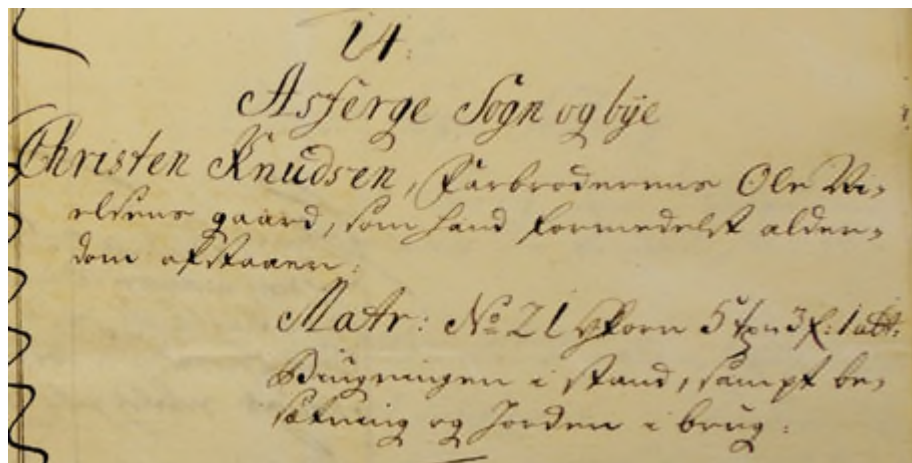 14.
Asferge Sogn og bÿe
Christen Knudsen, Farbroderens Ole Ni-
elsens gaard, som hand formedelst alder-
dom afstaaer:
Matr: No 21 Hkorn 5 tdr 3 f: 1 alb:
Biugningen i stand, sampt be-
sætning og Jorden i brug: